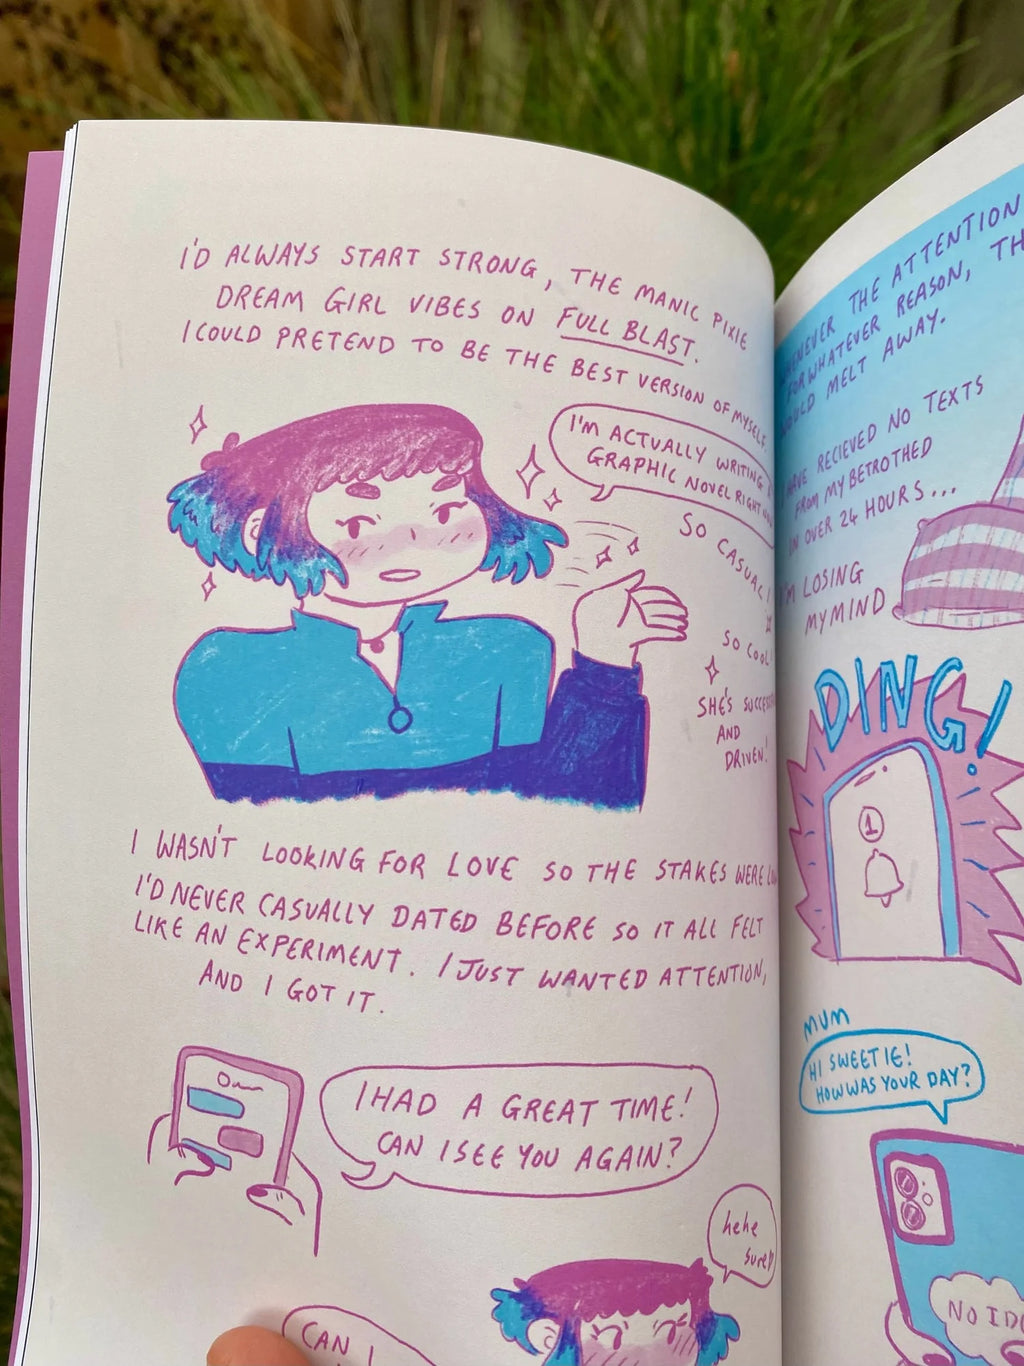 I'D ALWAYS START STRONG, THE MANIC PIXIE
DREAM GIRL VIBES ON FULL BLAST.
I COULD PRETEND TO BE THE BEST VERSION OF MYSELF.
I'M ACTUALLY WRITING
GRAPHIC NOVEL RIGHT
SO CASUAL!
SO COOL
SHE'S
AND
DRIVEN!
I WASN'T LOOKING FOR LOVE SO THE STAKES WERE
I'D NEVER CASUALLY DATED BEFORE SO IT ALL FELT
LIKE AN EXPERIMENT. I JUST WANTED ATTENTION,
AND I GOT IT.
I HAD A GREAT TIME!
CAN I SEE YOU AGAIN?
hehe
sure
CAN I
THE ATTENTION
FOR WHATEVER REASON,
MELT AWAY.
RECIEVED NO TEXTS
FROM MY BETROTHED
IN OVER 24 HOURS...
I'M LOSING
MY MIND
DING!
1
MUM
HI SWEETIE!
HOW WAS YOUR DAY?
NO